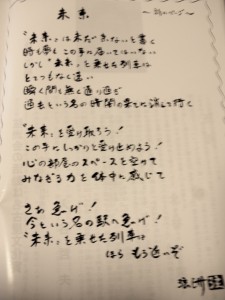 未来
"未来"は未だ来ないと書く
時も夢もこの手に届いてはいない
しかし"未来"を乗せた列車は
とてつもなく速い
瞬く間も無く通り過ぎ
過去という名の時間の果てに消えて行く
"未来"を受け取ろう!
この手にしっかりと受け止めよう!
心の部屋のスペースを空けて
みなぎる力を体中に感じて
さあ急げ!
今という名の駅へ急げ!
"未来"を乗せた列車は
ほら もう近いぞ